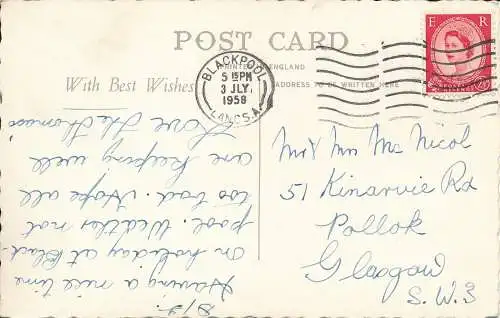 POST CARD
PRINTED IN ENGLAND
With Best Wishes
ADDRESS TO BE WRITTEN HERE
BLACKPOOL
5 15 PM
3 JLY
1958
LANCS. A
E R
Mr & Mrs Mc Nicol
51 Kinarvie Rd
Pollok
Glasgow
S.W.3
Having a nice time
on holiday at Black-
pool. Weather not
too bad. Hope all
are keeping well
Love The Thomsons